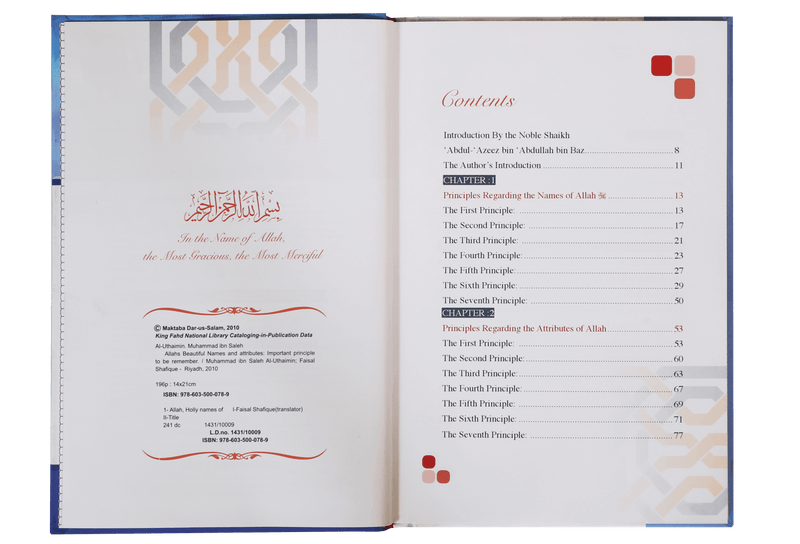 بسم الله الرحمن الرحيم
In the Name of Allah,
the Most Gracious, the Most Merciful
© Maktaba Dar-us-Salam, 2010
King Fahd National Library Cataloging-in-Publication Data
Al-Uthaimin. Muhammad ibn Saleh
Allahs Beautiful Names and attributes: Important principle
to be remember. / Muhammad ibn Saleh Al-Uthaimin; Faisal
Shafique - Riyadh, 2010
196p : 14x21cm
ISBN: 978-603-500-078-9
1- Allah, Holly names of I-Faisal Shafique(translator)
II-Title
241 dc 1431/10009
L.D.no. 1431/10009
ISBN: 978-603-500-078-9
Contents
Introduction By the Noble Shaikh
'Abdul-'Azeez bin 'Abdullah bin Baz 8
The Author's Introduction 11
CHAPTER :1
Principles Regarding the Names of Allah ﷻ 13
The First Principle: 13
The Second Principle: 17
The Third Principle: 21
The Fourth Principle: 23
The Fifth Principle: 27
The Sixth Principle: 29
The Seventh Principle: 50
CHAPTER :2
Principles Regarding the Attributes of Allah 53
The First Principle: 53
The Second Principle: 60
The Third Principle: 63
The Fourth Principle: 67
The Fifth Principle: 69
The Sixth Principle: 71
The Seventh Principle: 77